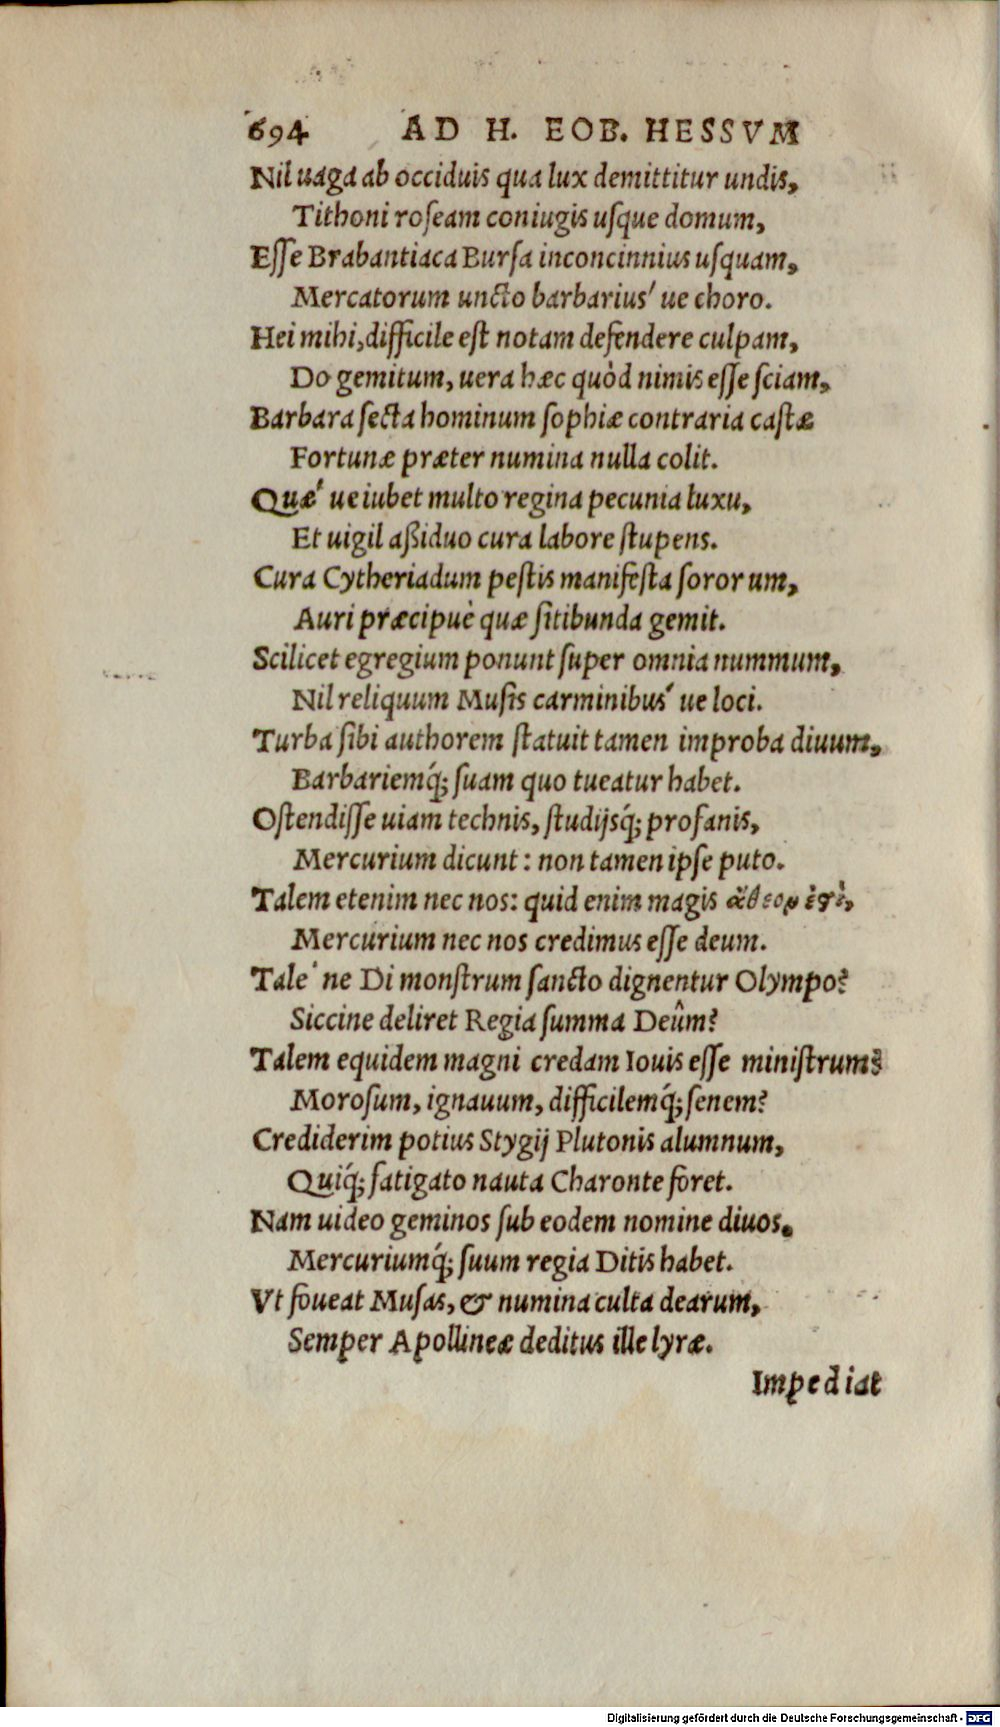 694 AD H. EOB. HESSVM
Nil uaga ab occiduis qua lux demittitur undis,
Tithoni roſeam coniugis uſque domum,
Eſſe Brabantiaca Burſa inconcinnius uſquam,
Mercatorum uncto barbarius' ue choro.
Hei mihi, difficile eſt notam defendere culpam,
Do gemitum, uera hæc quòd nimis eſſe ſciam,
Barbara ſecta hominum ſophiæ contraria caſtæ
Fortunæ præter numina nulla colit.
Quæ' ue iubet multo regina pecunia luxu,
Et uigil aßiduo cura labore ſtupens.
Cura Cytheriadum peſtis manifeſta ſororum,
Auri præcipuè quæ ſitibunda gemit.
Scilicet egregium ponunt ſuper omnia nummum,
Nil reliquum Muſis carminibus' ue loci.
Turba ſibi authorem ſtatuit tamen improba diuum,
Barbariemq́; ſuam quo tueatur habet.
Oſtendiſſe uiam technis, ſtudijsq́; profanis,
Mercurium dicunt: non tamen ipſe puto.
Talem etenim nec nos: quid enim magis ἄθεον ἐστὶ,
Mercurium nec nos credimus eſſe deum.
Tale' ne Di monſtrum ſancto dignentur Olympo?
Siccine deliret Regia ſumma Deûm?
Talem equidem magni credam Iouis eſſe miniſtrum?
Moroſum, ignauum, difficilemq́; ſenem?
Crediderim potius Stygij Plutonis alumnum,
Quiq́; fatigato nauta Charonte foret.
Nam uideo geminos ſub eodem nomine diuos.
Mercuriumq́; ſuum regia Ditis habet.
Vt foueat Muſas, & numina culta dearum,
Semper Apollineæ deditus ille lyræ.
Impediat
Digitalisierung gefördert durch die Deutsche Forschungsgemeinschaft - DFG